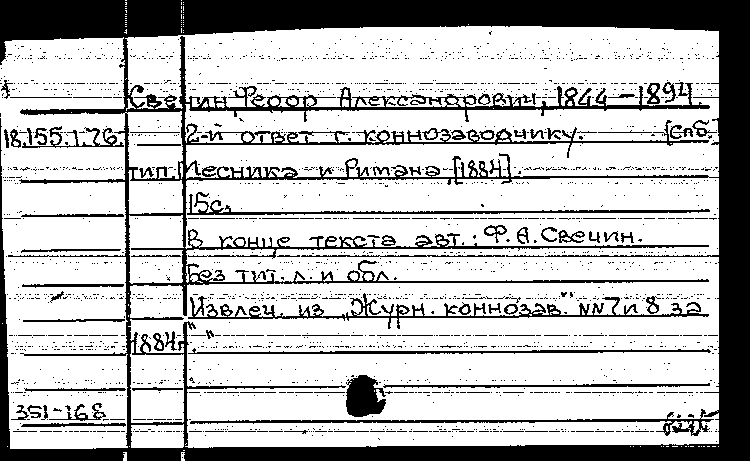 Свечин, Федор Александрович, 1844-1894.
18.155.1.76. 2-й ответ г. коннозаводчику. [Спб.]
тип. Лесника и Римана, [1884].
15с.
В конце текста авт.: Ф.А.Свечин.
Без тит. л. и обл.
Извлеч. из „Журн. коннозав." NN7и8 за
1884г."
351-168